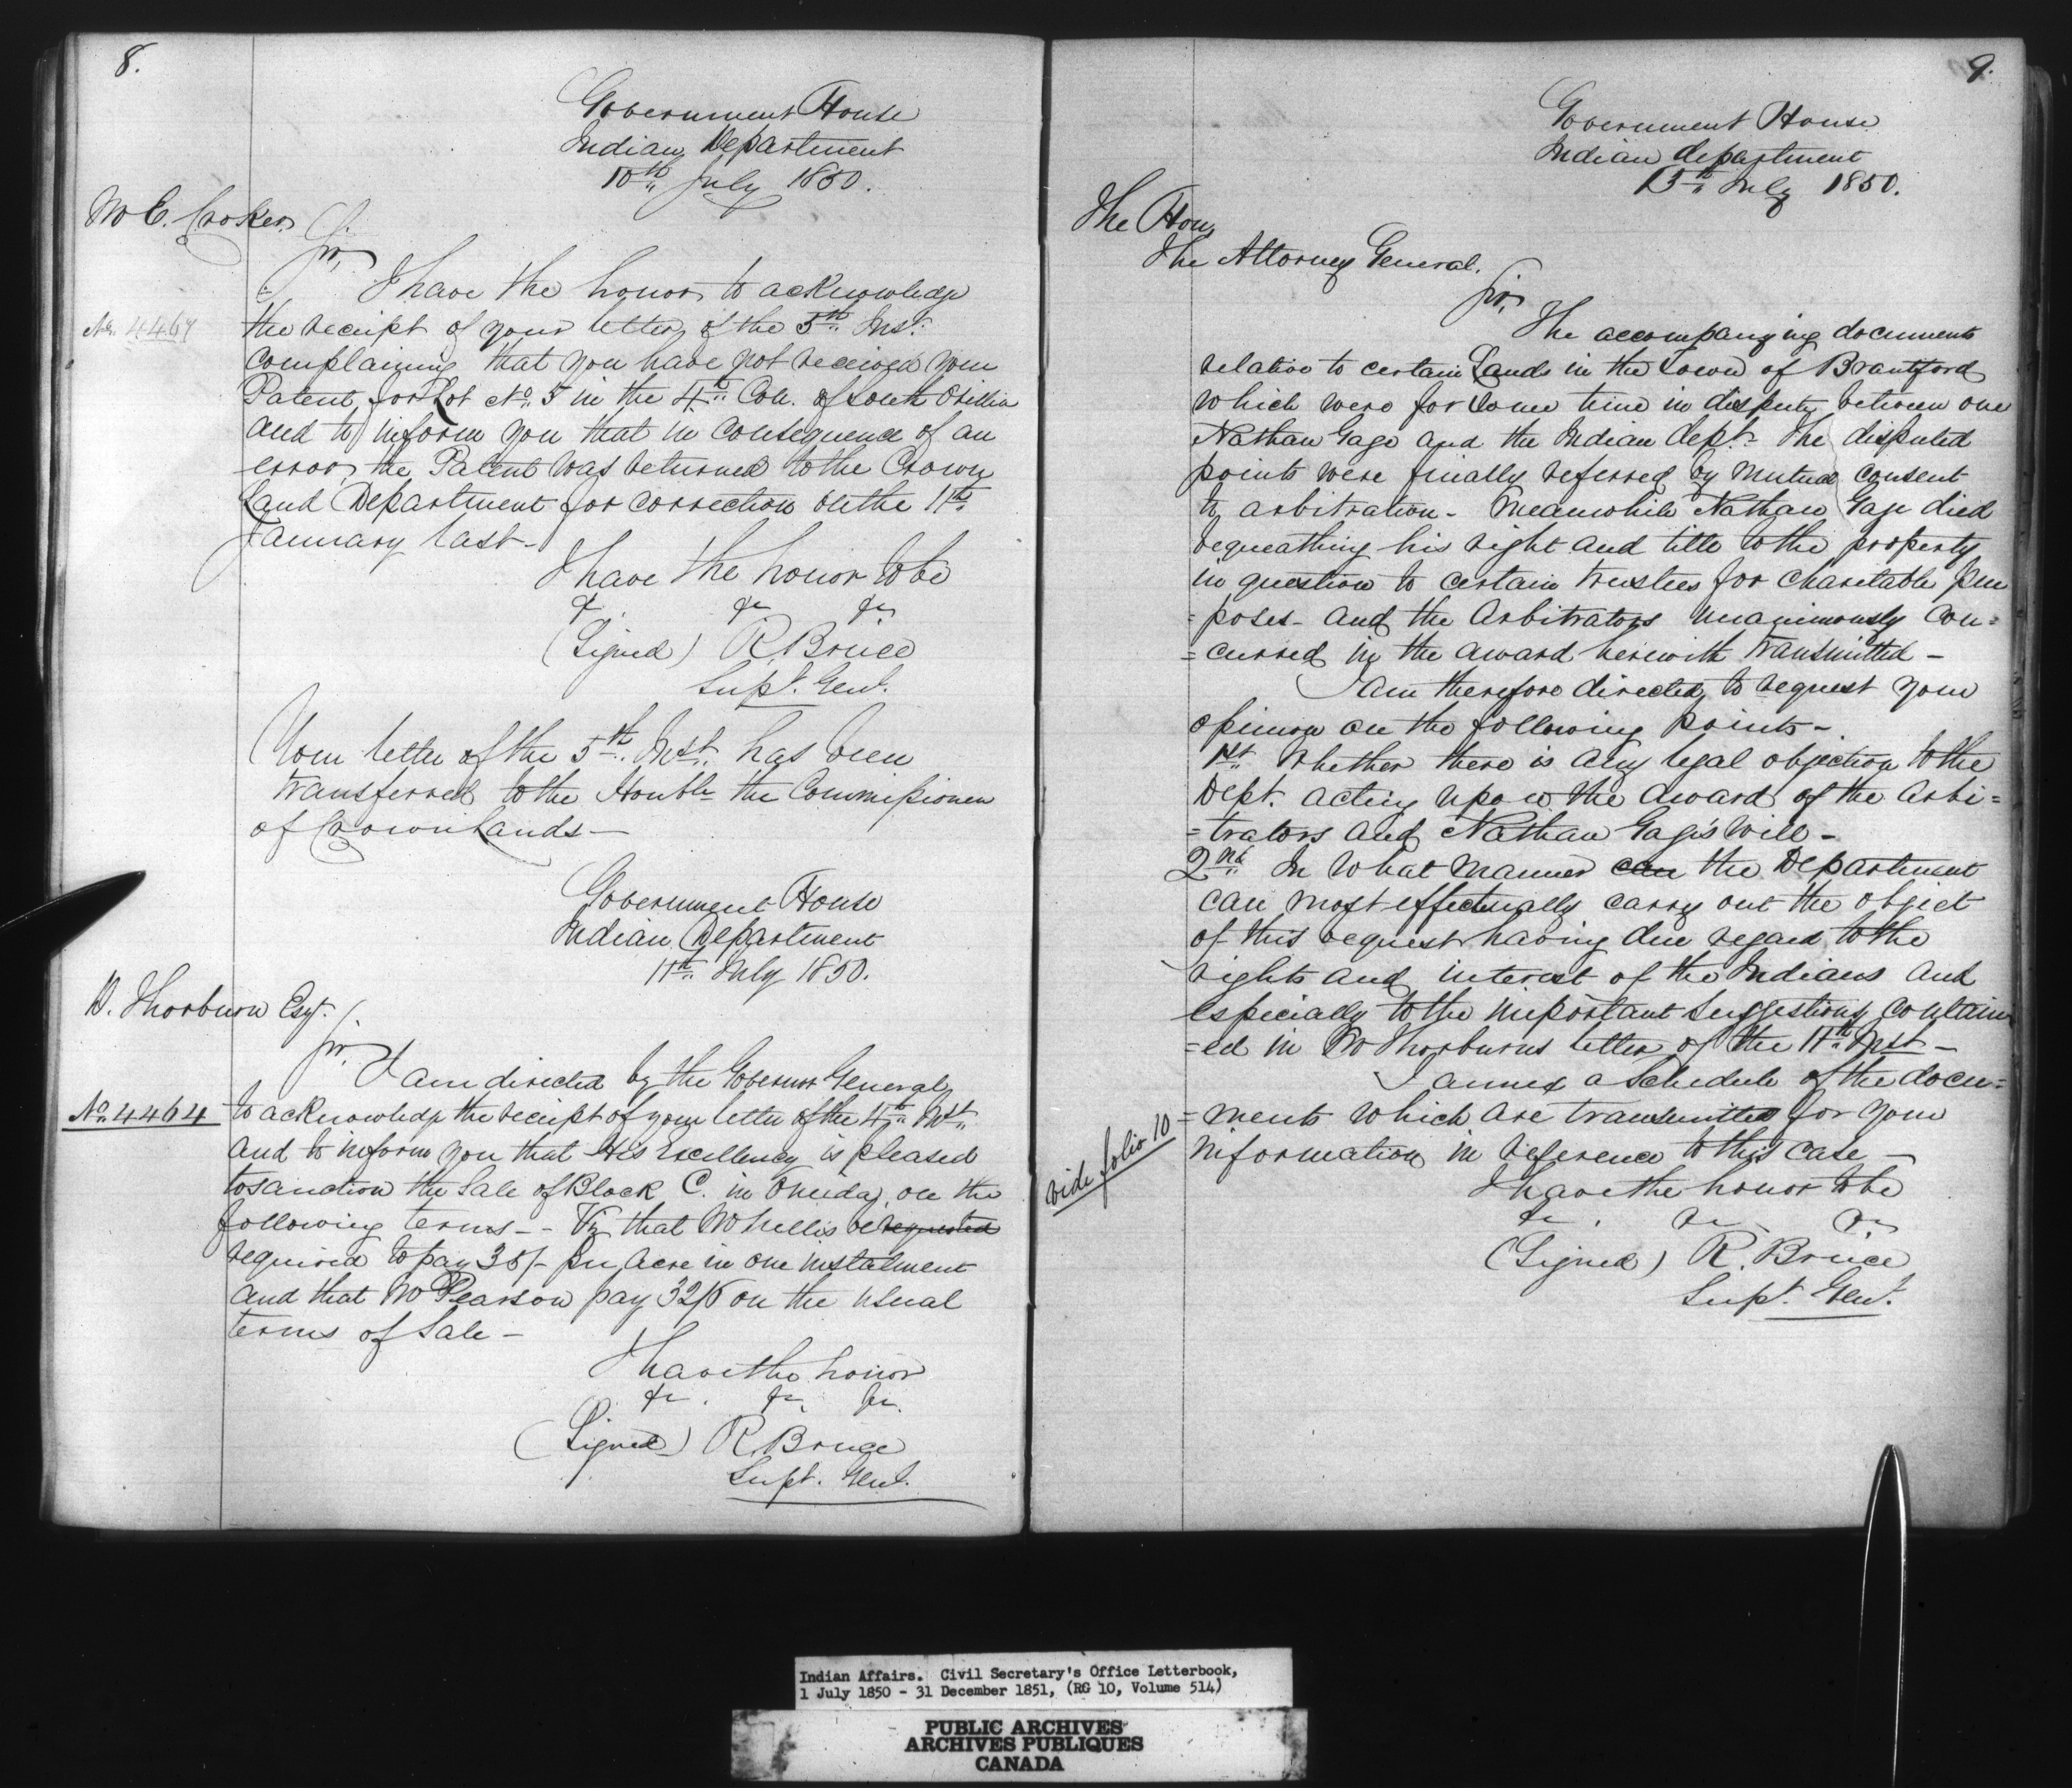 8.
Government House
Indian Department
10th July 1850.
Mr C. Croker
Sir,
I have the honor to acknowledge
No. 4467
the receipt of your letter of the 5th Inst.
complaining that you have not received your
Patent for Lot No. 5 in the 4th Con. of South Orillia
and to inform you that in consequence of an
error, the Patent was returned to the Crown
Land Department for correction on the 11th
January last -
I have the honor to be
&c &c &c
(Signed) R. Bruce
Supt. Genl.
Your letter of the 5th Inst. has been
transferred to the Honble the Commissioner
of Crown Lands -
Government House
Indian Department
11th July 1850.
D. Thorburn Esqr.
Sir,
I am directed by the Governor General
No. 4464
to acknowledge the receipt of your letter of the 4th Inst.
and to inform you that His Excellency is pleased
to sanction the Sale of Block C. in Oneida, on the
following terms - - Viz that Mr Nellis be requested
required to pay 35/- per Acre in one instalment
and that Mr Pearson pay 32/6 on the usual
terms of Sale -
I have the honor
&c. &c. &c.
(Signed) R. Bruce
Supt. Genl.
9.
Government House
Indian department
13th July 1850.
The Hon.
The Attorney General.
Sir,
The accompanying documents
relative to certain Lands in the Town of Brantford
which were for some time in dispute between one
Nathan Gage and the Indian Dept. The disputed
points were finally referred by mutual consent
to arbitration - Meanwhile Nathan Gage died
bequeathing his right and title to the property
in question to certain trustees for charitable pur
= poses - and the Arbitrators unanimously con =
= curred in the award herewith transmitted -
I am therefore directed to request your
opinion on the following points -
1st Whether there is any legal objection to the
Dept. acting upon the award of the Arbi =
= trators and Nathan Gage's will -
2nd In what manner can the Department
can most effectually carry out the object
of this bequest having due regard to the
rights and interest of the Indians and
especially to the important suggestions contain
= ed in Mr Thorburns letter of the 11th Inst -
I annex a Schedule of the docu =
vide folio 10
= ments which are transmitted for your
information in reference to this case -
I have the honor to be
&c. &c. &c.
(Signed) R. Bruce
Supt. Genl.
Indian Affairs. Civil Secretary's Office Letterbook,
1 July 1850 - 31 December 1851, (RG 10, Volume 514)
PUBLIC ARCHIVES
ARCHIVES PUBLIQUES
CANADA